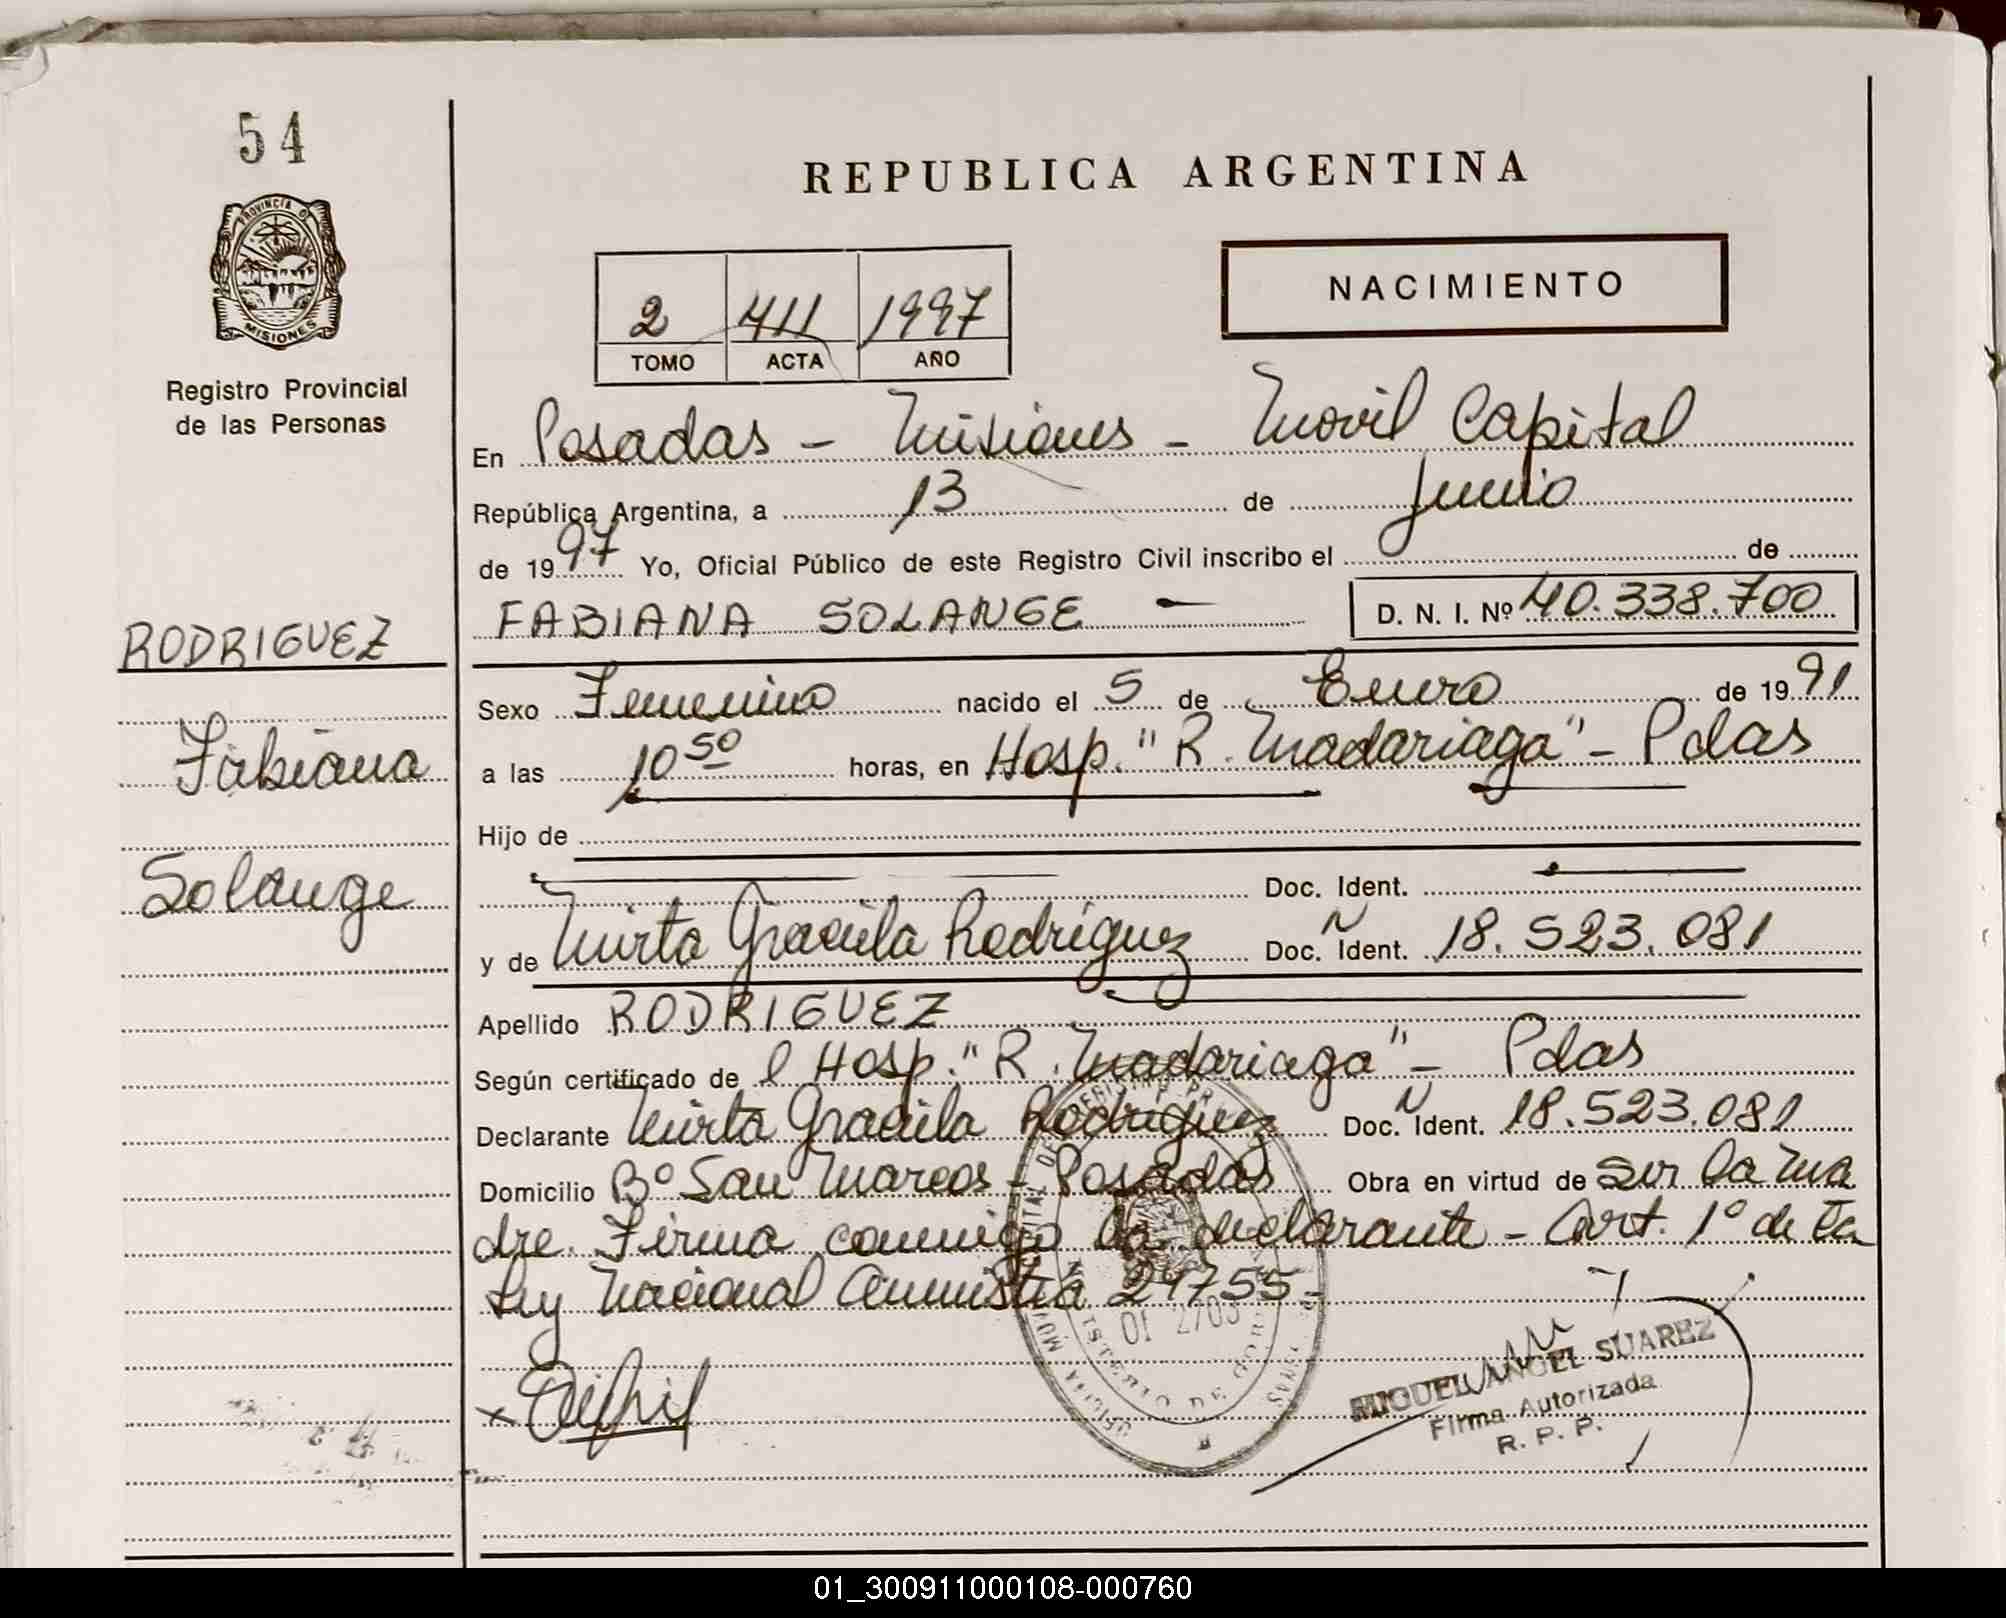 54
REPUBLICA ARGENTINA
PROVINCIA DE
MISIONES
Registro Provincial
de las Personas
2 411 1997
TOMO ACTA AÑO
NACIMIENTO
En Posadas - Misiones - Movil Capital
República Argentina, a 13 de Junio
de 1997 Yo, Oficial Público de este Registro Civil inscribo el de
FABIANA SOLANGE — D. N. I. Nº 40.338.700
RODRIGUEZ
Fabiana
Solange
Sexo Femenino nacido el 5 de Enero de 1991
a las 10 50 horas, en Hosp. "R. Madariaga" - Pdas
Hijo de
Doc. Ident.
y de Mirta Graciela Rodríguez Doc. Ñ Ident. 18.523.081
Apellido RODRIGUEZ
Según certificado de l Hosp. "R. Madariaga" - Pdas
Declarante Mirta Graciela Rodriguez Doc. Ñ Ident. 18.523.081
Domicilio Bº San Marcos - Posadas Obra en virtud de ser la ma
dre. Firma conmigo la declarante - Art. 1º de la
Ley Nacional Amnistia 24755-
MIGUEL ANGEL SUAREZ
Firma Autorizada
R. P. P.
01_300911000108-000760